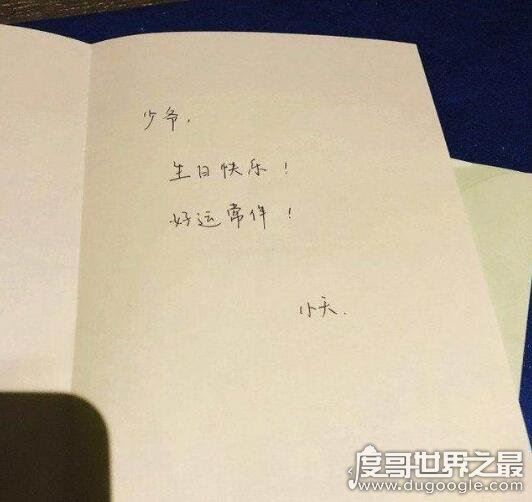 少爷，
生日快乐！
好运常伴！
小天.
度哥世界之最
www.dugoogle.com